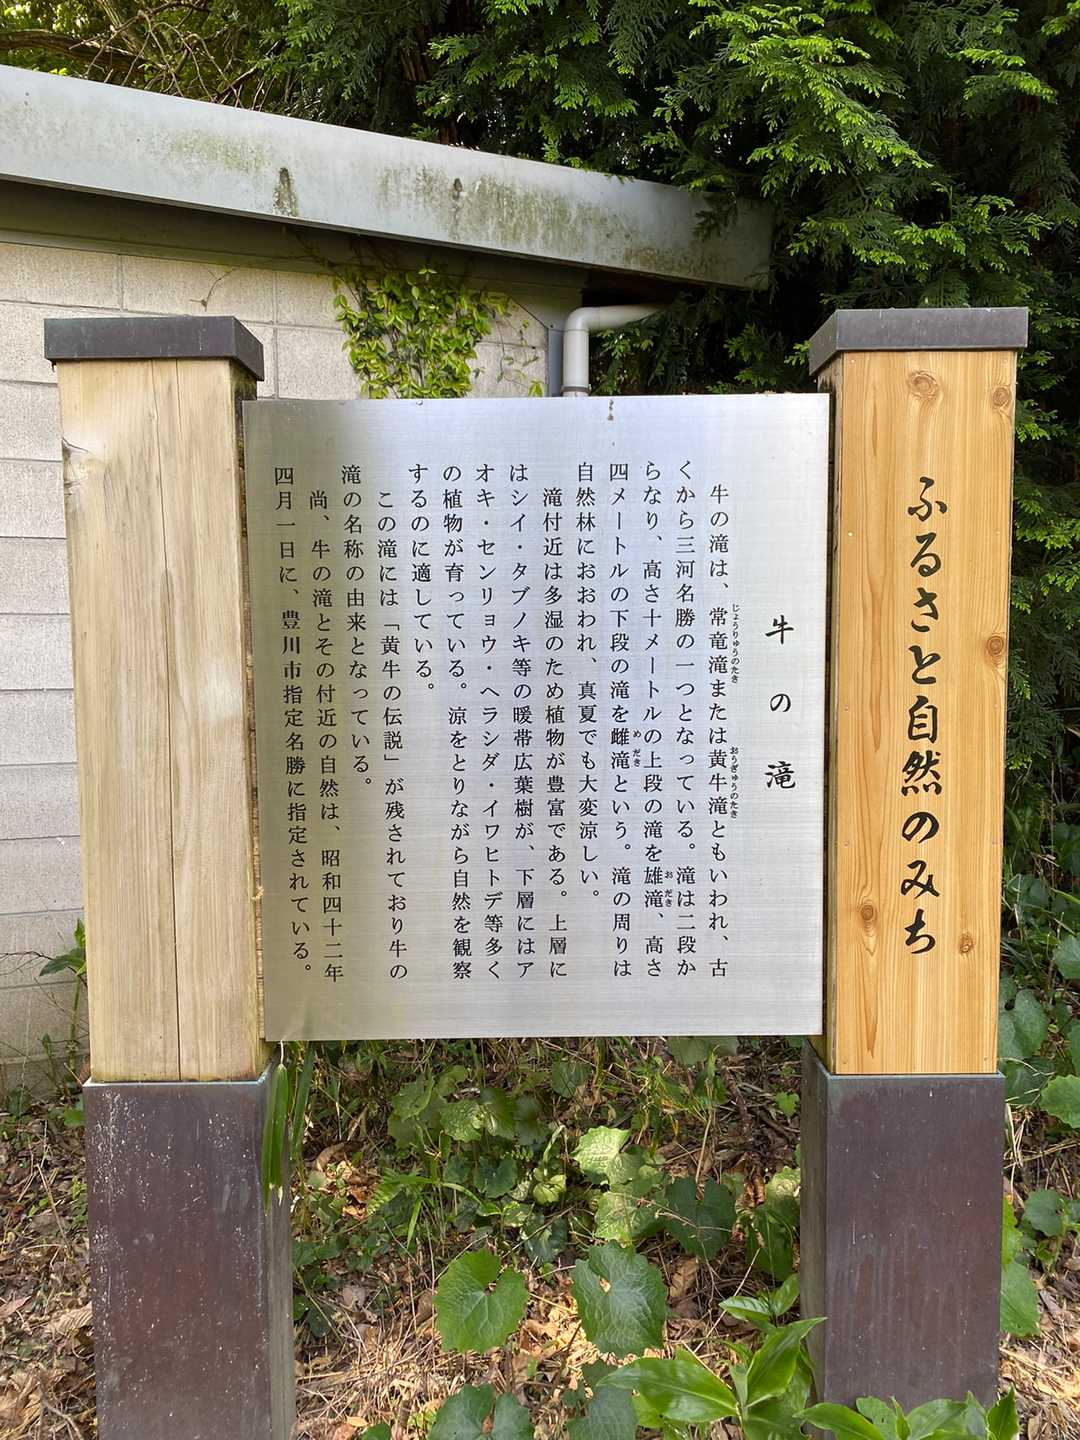 ふるさと自然のみち
牛の滝
牛の滝は、常竜滝または黄牛滝ともいわれ、古
じょうりゅうのたき
おうぎゅうのたき
くから三河名勝の一つとなっている。滝は二段か
らなり、高さ十メートルの上段の滝を雄滝、高さ
おだき
四メートルの下段の滝を雌滝という。滝の周りは
めだき
自然林におおわれ、真夏でも大変涼しい。
滝付近は多湿のため植物が豊富である。上層に
はシイ・タブノキ等の暖帯広葉樹が、下層にはア
オキ・センリョウ・ヘラシダ・イワヒトデ等多く
の植物が育っている。涼をとりながら自然を観察
するのに適している。
この滝には「黄牛の伝説」が残されており牛の
滝の名称の由来となっている。
尚、牛の滝とその付近の自然は、昭和四十二年
四月一日に、豊川市指定名勝に指定されている。